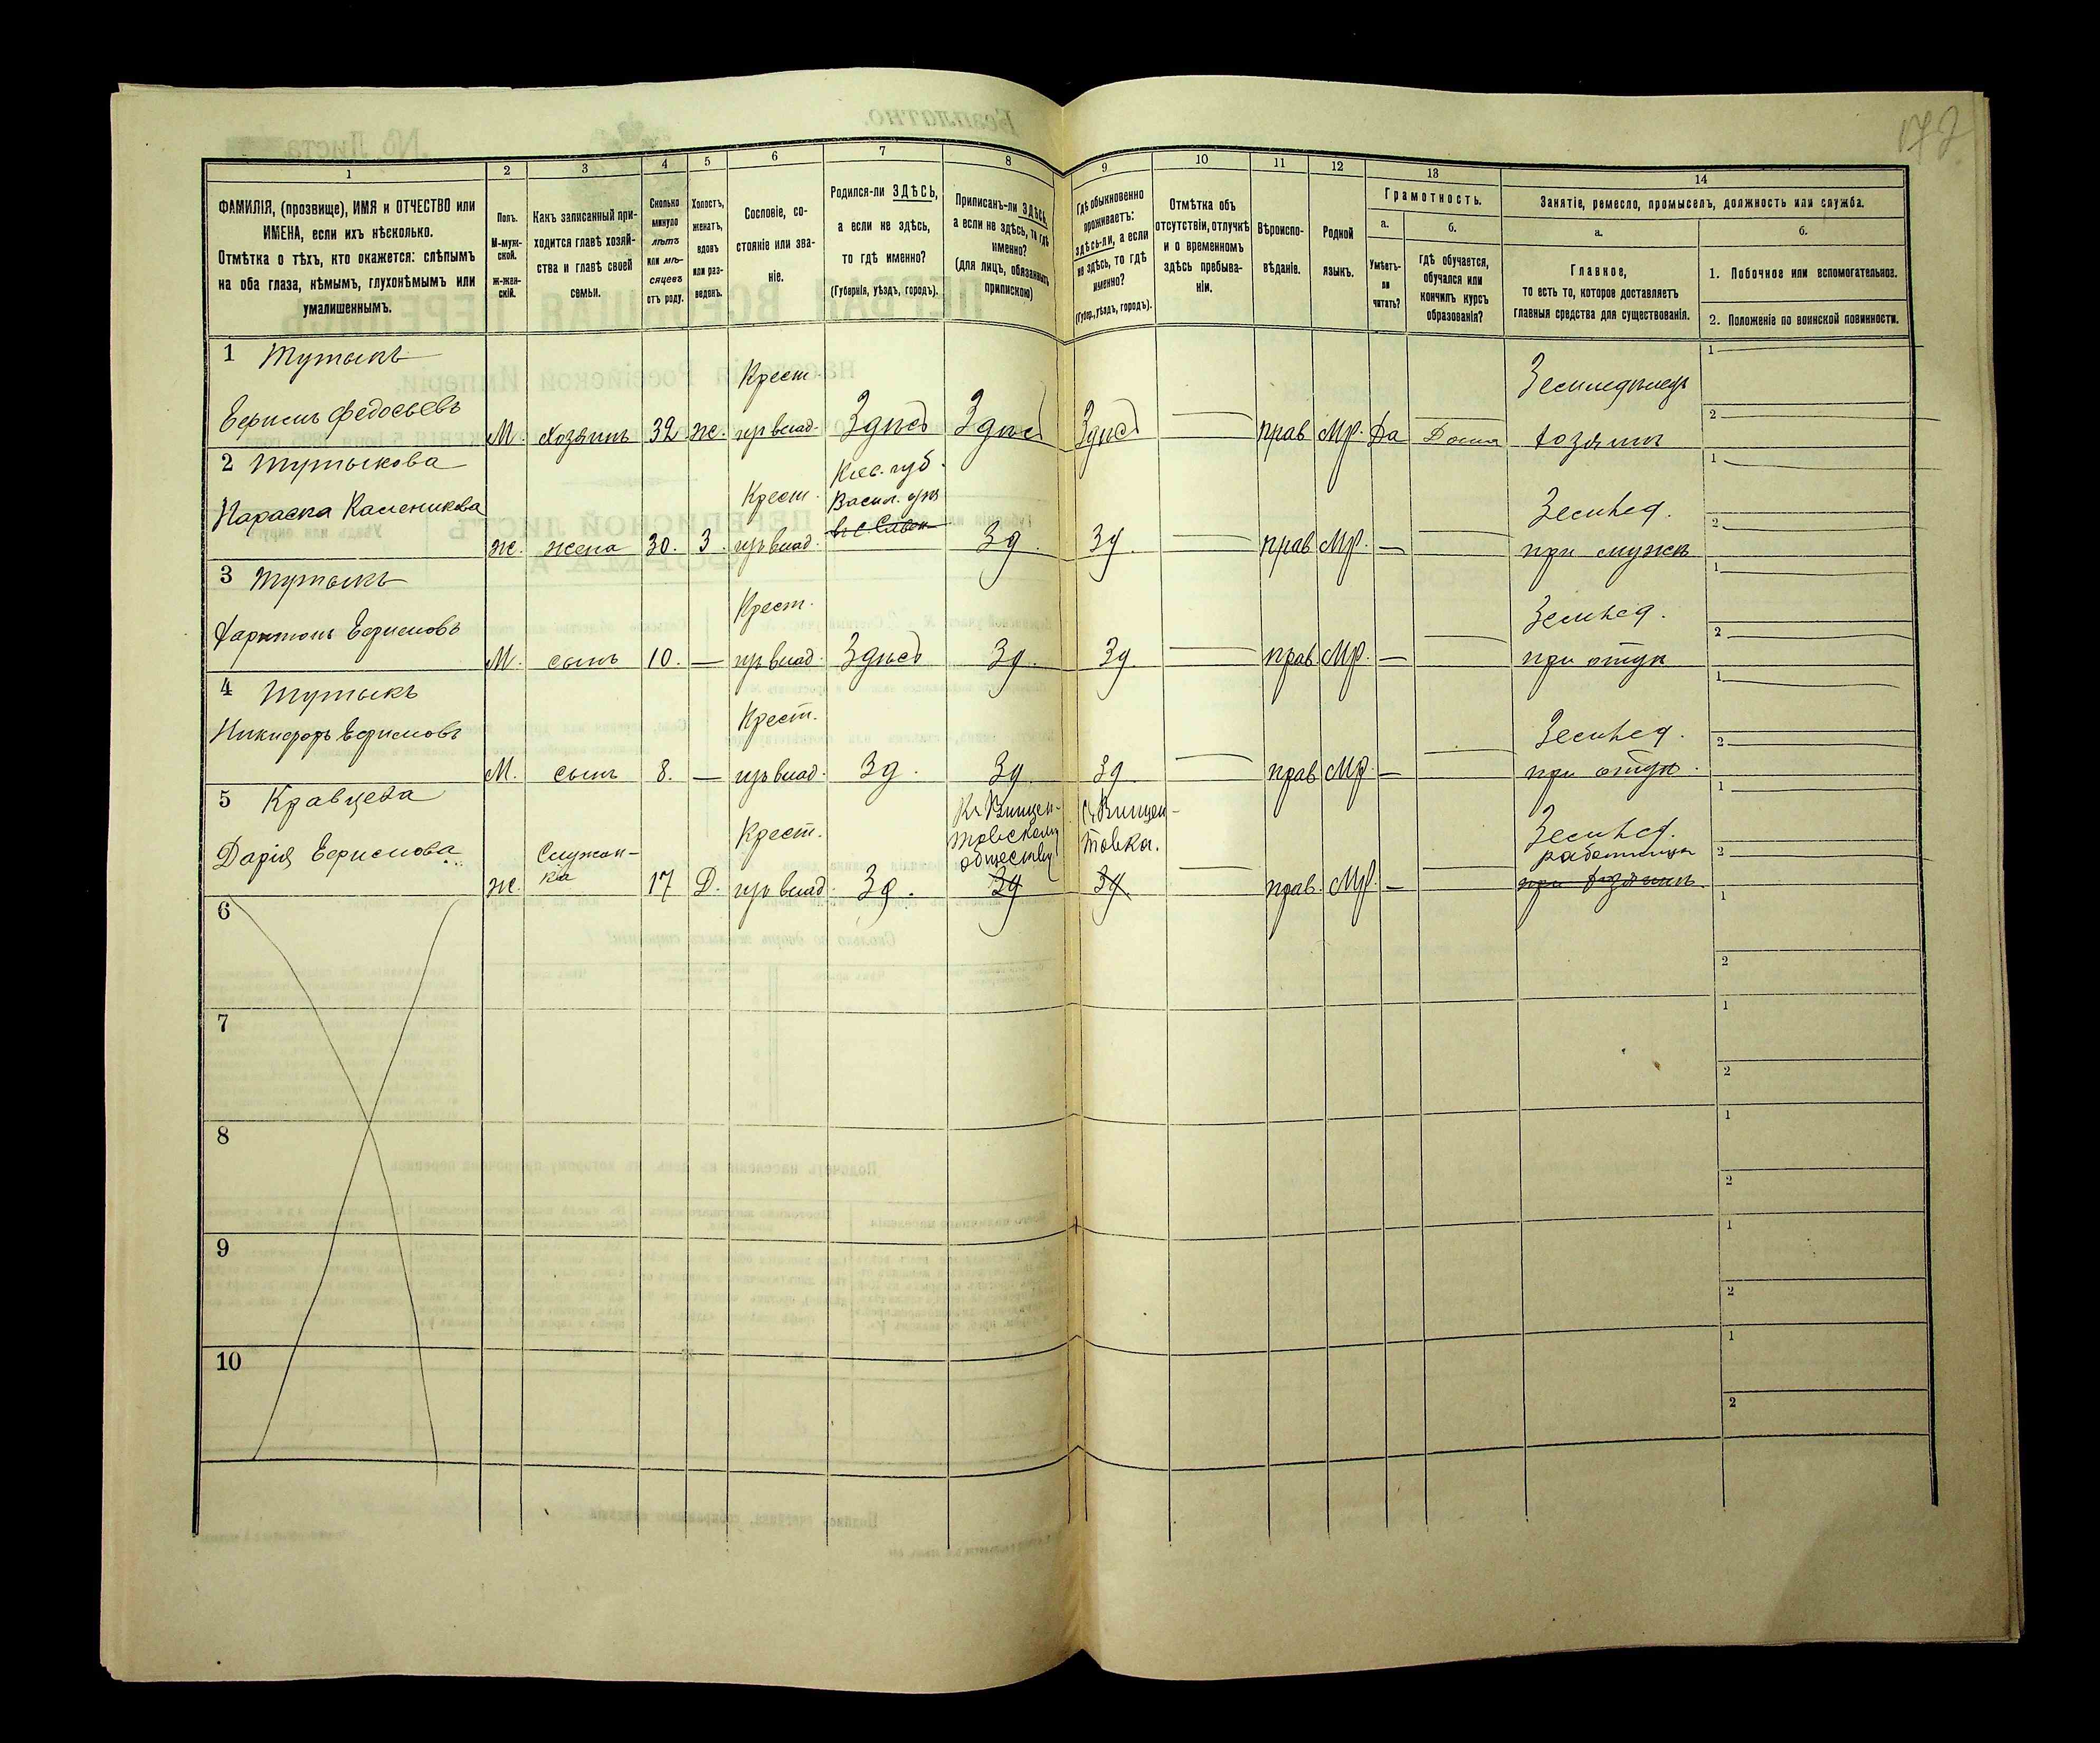 172
1 2 3 4 5 6 7 8 9 10 11 12 13 14
ФАМИЛІЯ, (прозвище), ИМЯ и ОТЧЕСТВО или
ИМЕНА, если ихъ нѣсколько.
Отмѣтка о тѣхъ, кто окажется: слѣпымъ
на оба глаза, нѣмымъ, глухонѣмымъ или
умалишеннымъ.
Полъ.
М-муж-
ской.
ж-жен-
скій.
Какъ записанный при-
ходится главѣ хозяй-
ства и главѣ своей
семьи.
Сколько
минуло
лѣтъ
или мѣ-
сяцевъ
отъ роду.
Холостъ,
женатъ,
вдовъ
или раз-
веденъ.
Сословіе, со-
стояніе или зва-
ніе.
Родился-ли ЗДѢСЬ,
а если не здѣсь,
то гдѣ именно?
(Губернія, уѣздъ, городъ).
Приписанъ-ли ЗДѢСЬ,
а если не здѣсь, то гдѣ
именно?
(для лицъ, обязанныхъ
припискою)
Гдѣ обыкновенно
проживаетъ:
здѣсь-ли, а если
не здѣсь, то гдѣ
именно?
(Губер., уѣздъ, городъ).
Отмѣтка объ
отсутствіи, отлучкѣ
и о временномъ
здѣсь пребыва-
ніи.
Вѣроиспо-
вѣданіе.
Родной
языкъ.
Грамотность.
а.
Умѣетъ-
ли
читать?
б.
гдѣ обучается,
обучался или
кончилъ курсъ
образованія?
Занятіе, ремесло, промыселъ, должность или служба.
а.
Главное,
то есть то, которое доставляетъ
главныя средства для существованія.
б.
1. Побочное или вспомогательное.
2. Положеніе по воинской повинности.
1 Тутыкъ
Ефимъ Федосьевъ
М. Хозяинъ 32 ж. Крест.
изъ влад. Здѣсь Здѣсь Здѣсь — прав Мр. Да Дома Земледѣлецъ
хозяинъ
1 —
2 —
2 Тутыкова
Параска Каленикова
ж. жена 30. З. Крест.
изъ влад. Кіев. губ.
Васил. уѣз
зд. зд. — прав Мр. — — Землед.
при мужѣ
1 —
2 —
3 Тутыкъ
Харитонъ Ефимовъ
М. сынъ 10. — Крест.
изъ влад. Здѣсь зд. зд. — прав. Мр. — — Землед.
при отцѣ
1 —
2 —
4 Тутыкъ
Никифоръ Ефимовъ
М. сынъ 8. — Крест.
изъ влад. зд. зд. зд. — прав Мр. — — Землед.
при отцѣ.
1 —
2 —
5 Кравцева
Дарія Ефимова
ж. Служан-
ка 17 Д. Крест.
изъ влад. зд. Къ Винцен-
товскому
обществу
зд с. Винцен-
товка.
зд — прав. Мр. — — Землед.
работница
при хозяинѣ.
1 —
2 —
6
1
2
7
1
2
8
1
2
9
1
2
10
1
2